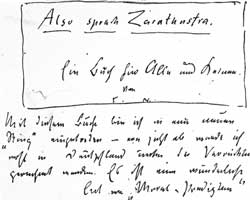 Also sprach Zarathustra.
Ein Buch für Alle und Keinen.
Von
F. N.
Mit diesem Buche bin ich in einen neuen
"Ring" eingetreten – von jetzt ab werde ich
wohl in Deutschland unter die Verrückten
gerechnet werden. Es ist eine wunderliche
Art von "Moral-Predigten"